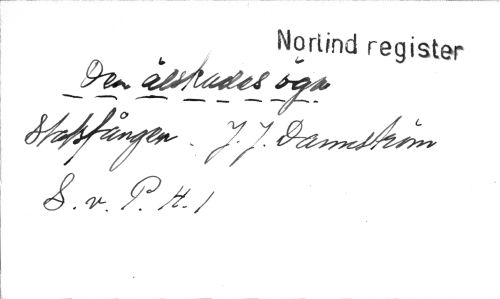 Norlind register
Den älskades öga
Statsfången. J. J. Dannström
S. v. P. H. 1